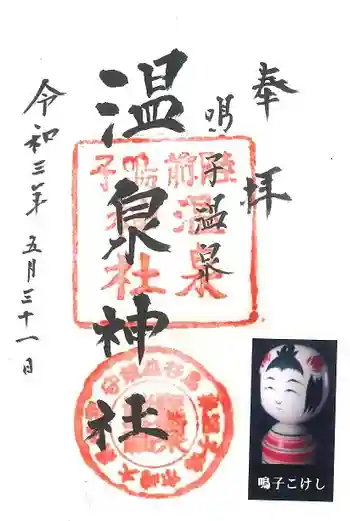 奉拝
鳴子温泉
温泉神社
令和三年五月三十一日
陸前
温泉
鳴子
神社
鳴子こけし